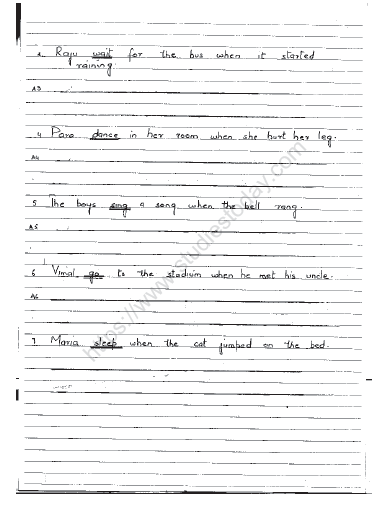 3. Raju wait for the bus when it started
raining.
A3
4 Paro dance in her room when she hurt her leg.
A4
5 The boys sing a song when the bell rang.
A5
6 Vimal go to the stadium when he met his uncle.
A6
7 Maria sleep when the cat jumped on the bed.
https://www.studiestoday.com